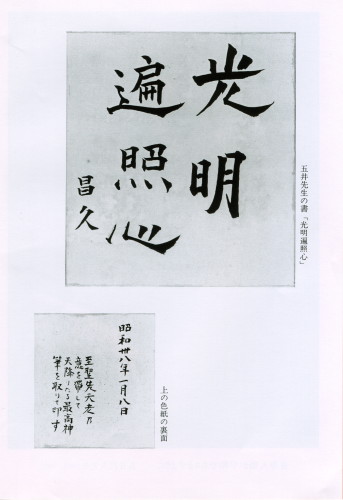 光明
遍照心
昌久
五井先生の書「光明遍照心」
昭和卅八年一月八日
至聖先天老乃
意を帯して
天降りたる最高神
筆を取りて印す
上の色紙の裏面